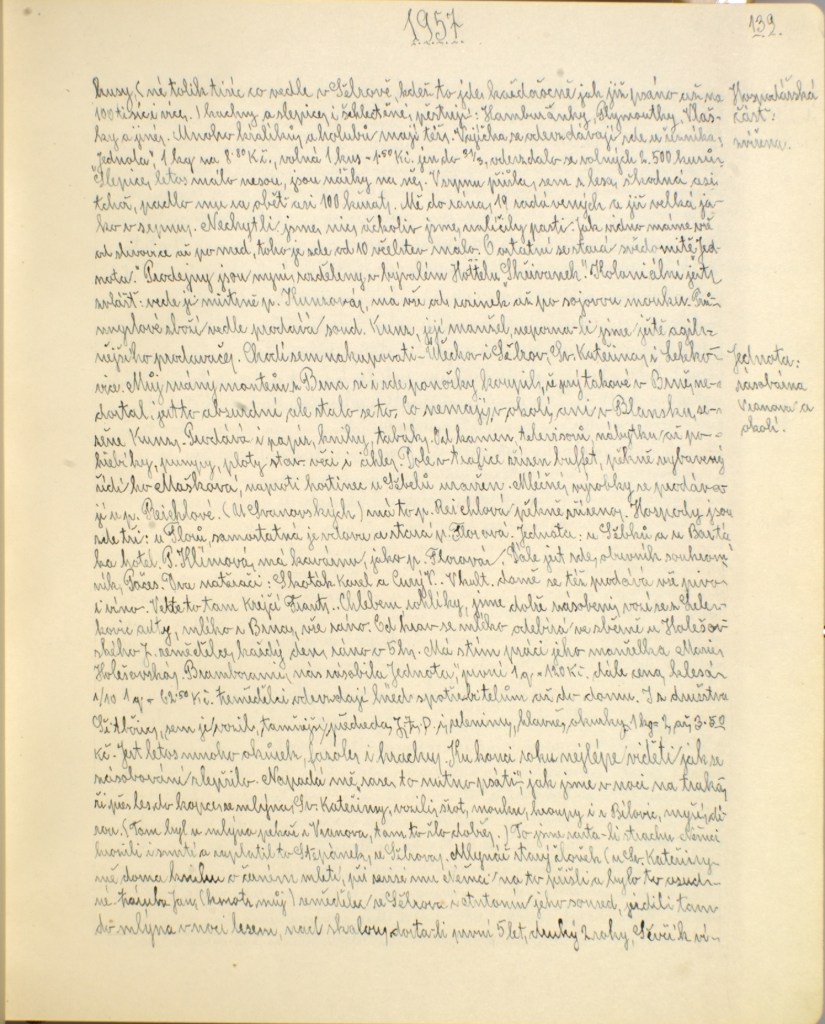 1957
139.
kusy, (né tolik tisíc co vedle v Síkrově, kdež to jde každoročně jak již psáno až na
100 tisíc i více. / kachny a slepice, i šlechtěné, pěstují: Hamburčanky, Plymoutky, Vlaš-
ky a jiné. Mnoho králíků, a holubů mají též. Vajíčka se odevzdávají zde u
"Jednota", 1 kg na 8.80 Kč., volná 1 kus - 1.50 Kč. jen do odevzdalo se volných 2.500 kusů.
Slepice, letos málo nesou, jsou nářky na něj. V srpnu přišla, sem z lesa, škodná asi
tchoř, padlo mu za oběť asi 100 kuřat. Mě do rána, 19 zadávených a již velká ja-
ko v srpnu. Nechytli jsme, nic, ačkoliv jsme nalíčily pasti. Jak vidno máme vše
od slivovice až po med, toho je zde od 10 včelstev málo. O ostatní se stará svědomitě Jed-
nota." Prodejny jsou nyní, rozděleny v bývalém Hostelu "Skřivanek". Koloniální jest
zvlášť: vede ji místně p. Kunzová, má vše od rozinek až po sojovou mouku. Prů-
myslové zboží vedle prodává soud. Kunz, její manžel, nepozna-li jsme ještě agil-
nějšího prodavače. Chodí sem nakupovati - Útěchov i Síkrov, Sv. Kateřina, i Leleko-
vice. Můj známý montér z Brna si i zde ponožky koupil, že prý takové v Brně, ne-
dostal, jest to absurdní ale stalo se to. Co nemají, v okolí, ani v Blansku, se-
žene Kunz. Prodává i papír, knihy, tabák. Od kamen, televisorů, nábytku až po
hřebíky, pumpy, ploty stav. věci i cihly. Dole v trafice zřízen buffet, pěkně vybavený
řídí ho Mašková, naproti hostinec u Síbelů uzavřen. Mléčné, výrobky se prodáva-
jí u p. Reichlové. (U Ivanovských) má to p. Reichlová pěkně zřízeno. Hospody jsou
zde tři: u Florů, samostatná je vdova a stará p. Florová. Jednota: u Síbků a u Bartá
ka hotel. P. Klímová, má kavárnu, jako p. Florová. Dále jest zde, obuvník soukrom-
ník, Pařes. Dva natěrači: Skoták Karel a Černý V.. V kult. domě se též prodává vše pivo-
i víno. Vede to tam Krejčí Frant.. Chlebem, rohlíky, jsme dobře zásobeni, vozí se z Lele-
kovic auty, mléko z Brna, vše ráno. Od krav se mléko odebírá ve sběrně u Holešov-
ského J. zemědělce, každý den, ráno v 5 h. Má s tím práci jeho manželka Marie,
Holešovská. Bramborami, nás zásobila "Jednota", první 1 q. = 120 Kč. dále cena klesá-
1/10 1 q. = 62.50 Kč. Zemědělci odevzdají hned spotřebitelům až do domu. I z družstva
sem je vozil, tamnější, předseda, J.Z.D. i zeleninu, hlavně, okurky, 1 kg = 2, až, 3.50
Kč. Jest letos mnoho okurek, fazole i hrachu. Ku konci roku nejlépe viděti jak se
zásobování zlepšilo. Napadá mě, zase, to nutno psáti, jak jsme v noci na traka-
ři přes les do kopce, ze mlýna, Sv. Kateřiny, vozili, šrot, mouku, kroupy i z Bílovic,
(Tam byl u mlýna pekař z Vranova, tam to šlo dobře.) To jsme zasta-li strachu Němci
hrozili i smrtí a zaplatil to Štěpánek, u Síkrova. Mlynář starý člověk (u Sv. Kateřiny-
mě doma knihu o černém mletí, při revisi mu Němci na to přišli a bylo to osud-
né. Jan, (kmotr, můj) zemědělec ze Síkrova i Antonín jeho soused, jezdili tam
do mlýna v noci lesem, nad skalou, dosta-li první 5 let, druhý 2 roky, Skořík ví-
Hospodářská
část:
zvířena.
Jednota:
zásobána
Vranova a
okolí.